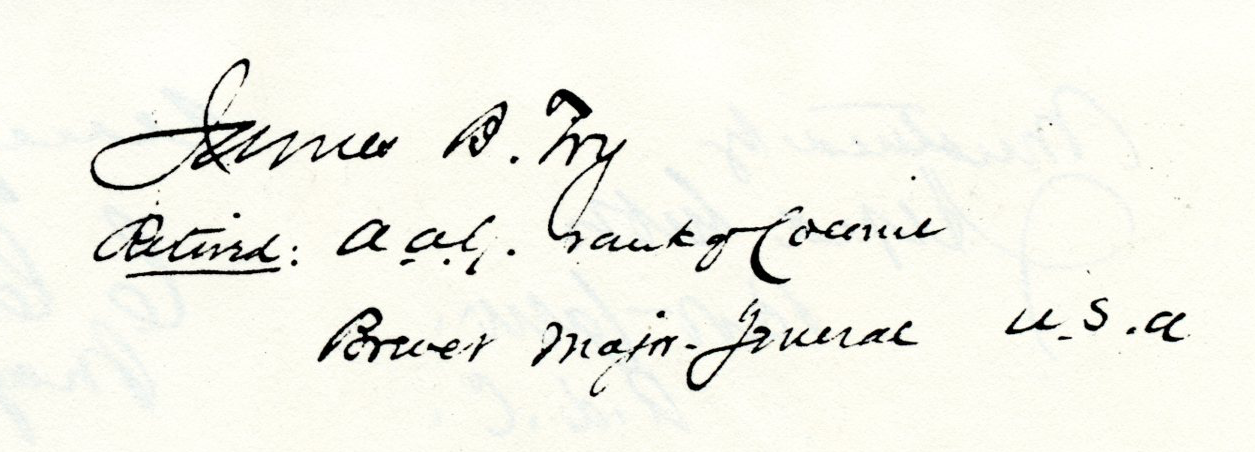 James B. Fry
Retired: A.A.G. rank of Colonel
Brevet Major-General U.S.A